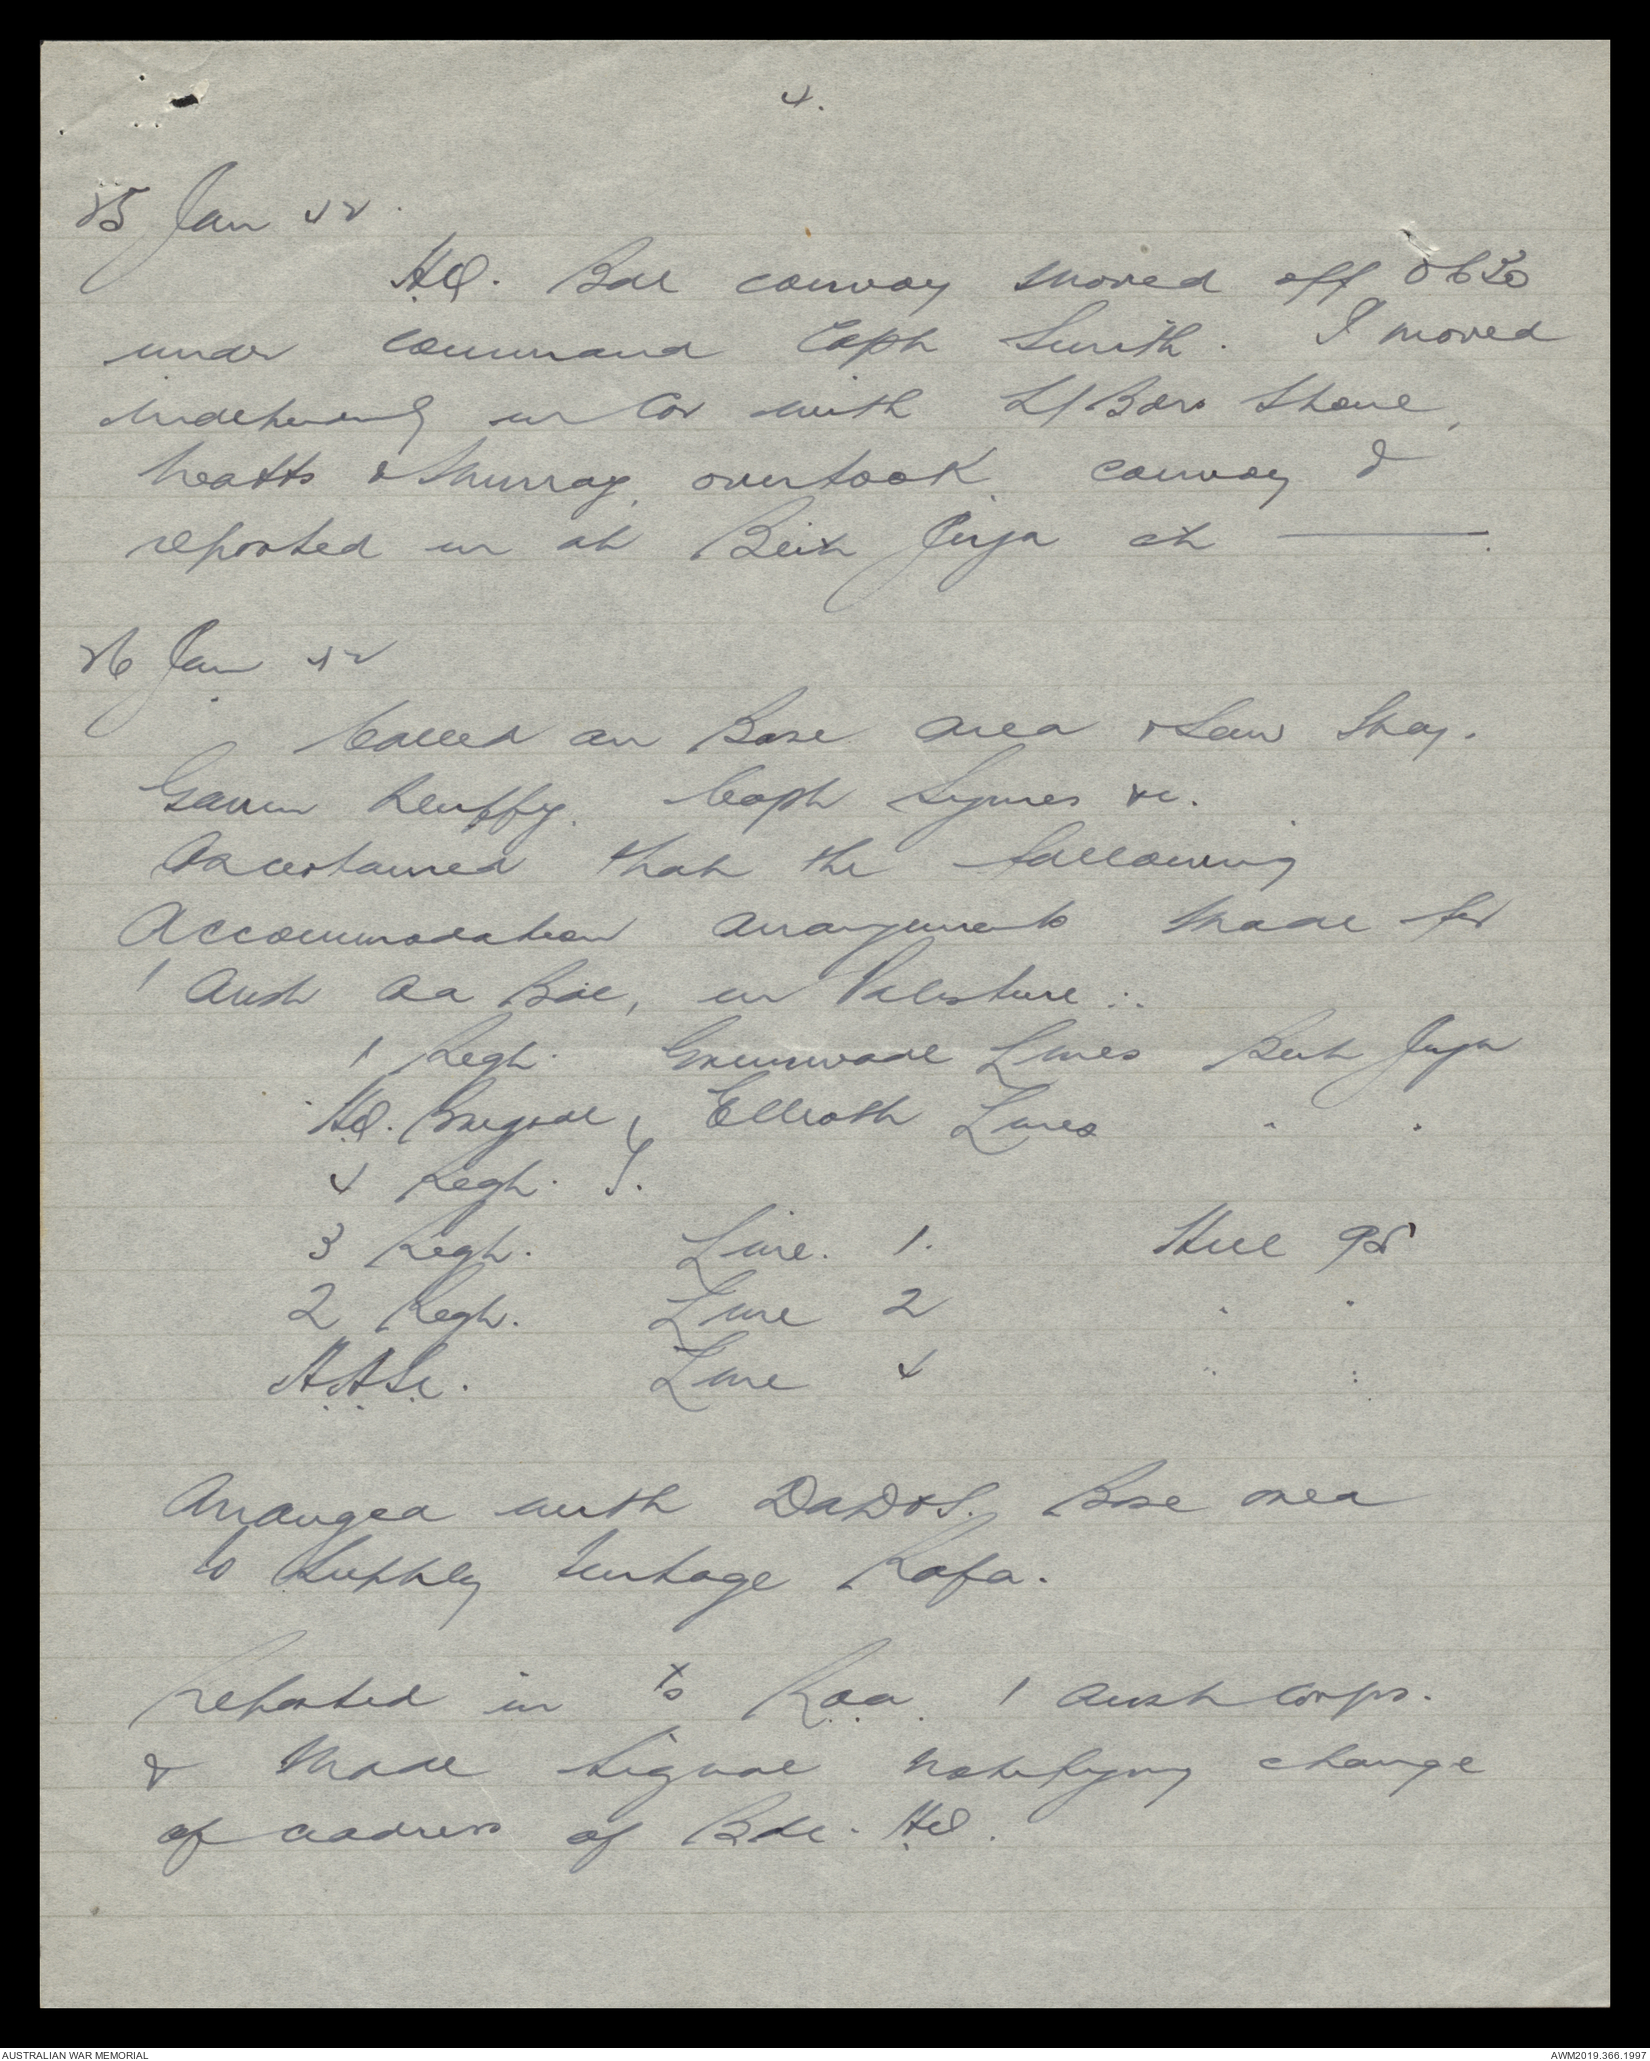 4.
25 Jan 42.
HQ. Bde convoy moved off 0630
under command Capt Smith. I moved
independently in Car with L/Bdrs
& Murray, overtook convoy &
reported in at Beit Jirja at ———.
26 Jan 42
Called on Base area & saw
Capt Symes &c.
Ascertained that the following
Accommodation arrangements made for
1 Aust AA Bde, in Palestine :-
1 Regt. Lines Beit Jirja
HQ. Brigade } Lines " "
4 Regt. }
3 Regt. Line. 1. Hill 95
2 Regt. Line 2 " "
Line 4 " "
Arranged with DADOS. Base area
to supply tentage Rafa.
Reported in to RAA. 1 Aust Corps.
& made signal notifying change
of address of Bde. HQ.
AUSTRALIAN WAR MEMORIAL
AWM2019.366.1997